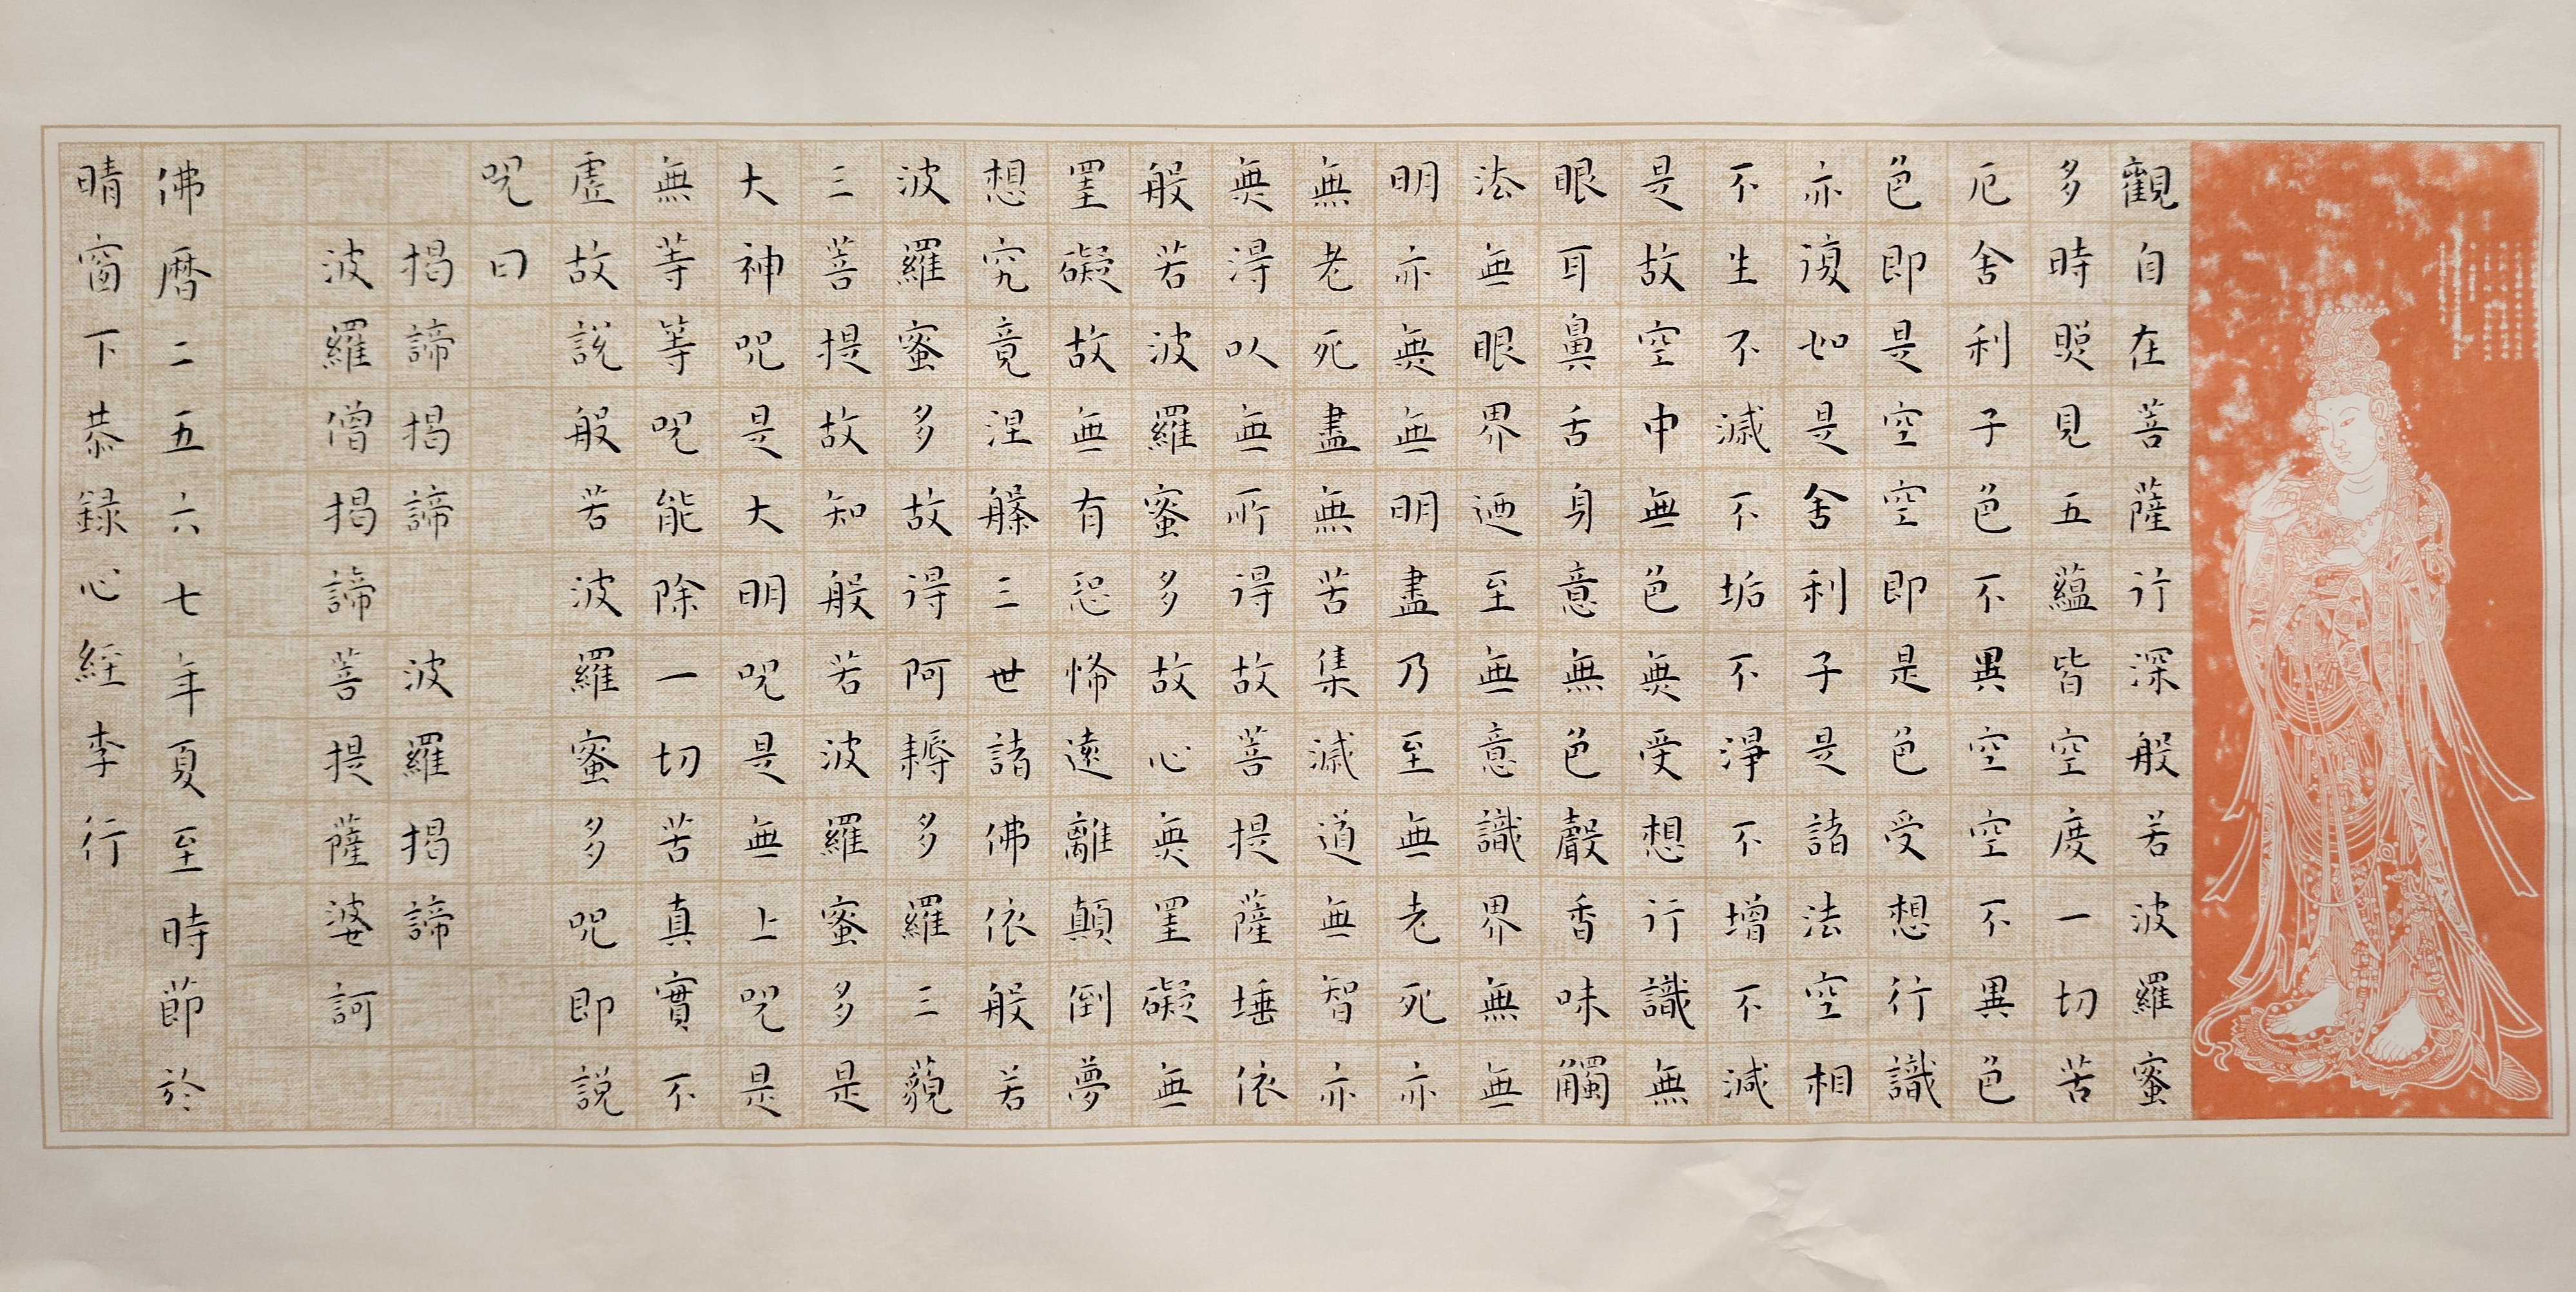 觀自在菩薩行深般若波羅蜜
多時照見五蘊皆空度一切苦
厄舍利子色不異空空不異色
色即是空空即是色受想行識
亦復如是舍利子是諸法空相
不生不滅不垢不淨不增不減
是故空中無色無受想行識無
眼耳鼻舌身意無色聲香味觸
法無眼界迺至無意識界無無
明亦無無明盡乃至無老死亦
無老死盡無苦集滅道無智亦
無得以無所得故菩提薩埵依
般若波羅蜜多故心無罣礙無
罣礙故無有恐怖遠離顛倒夢
想究竟涅槃三世諸佛依般若
波羅蜜多故得阿耨多羅三藐
三菩提故知般若波羅蜜多是
大神咒是大明咒是無上咒是
無等等咒能除一切苦真實不
虛故說般若波羅蜜多咒即說
咒曰
揭諦揭諦 波羅揭諦
波羅僧揭諦 菩提薩婆訶
佛曆二五六七年夏至時節於
晴窗下恭録心經李行